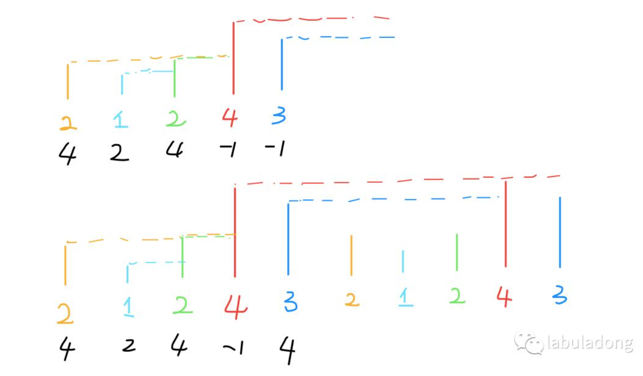 2 1 2 4 3
4 2 4 -1 -1
2 1 2 4 3 2 1 2 4 3
4 2 4 -1 4
labuladong